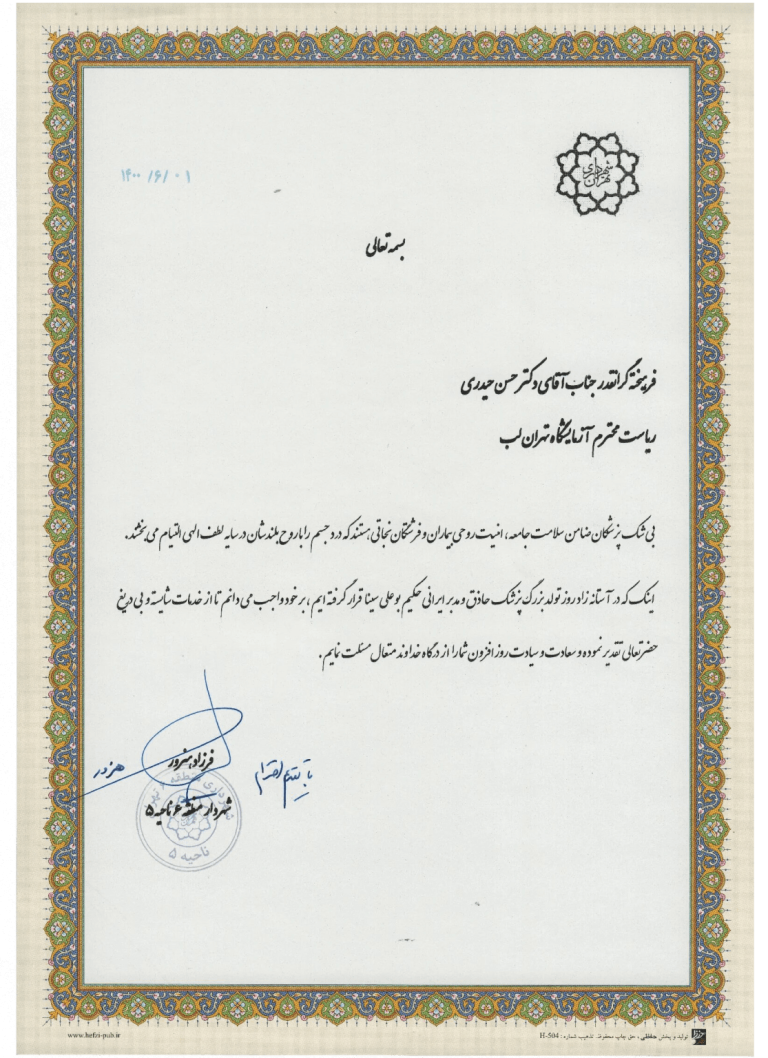 شهرداری تهران
۱۴۰۰/۶/۰۱
بسمه تعالی
فرهیخته گرانقدر جناب آقای دکتر حسن حیدری
ریاست محترم آزمایشگاه تهران لب
بی شک پزشکان ضامن سلامت جامعه، امنیت روحی بیماران و فرشتگان نجاتی هستند که درد جسم را با روح بلندشان در سایه لطف الهی التیام می بخشند.
اینک که در آستانه زاد روز تولد بزرگ پزشک حاذق و مدبر ایرانی حکیم بوعلی سینا قرار گرفته ایم، بر خود واجب می دانم تا از خدمات شایسته و بی دریغ
حضرتعالی تقدیر نموده و سعادت و سیادت روز افزون شما را از درگاه خداوند متعال مسئلت نمایم.
با تقدیم احترام
فرزاد هنرور
هنرور
شهردار منطقه ۶ ناحیه ۵
شهرداری منطقه ۶
ناحیه ۵
www.hefzi-pub.ir
تولید و پخش حافظی، حق چاپ محفوظ. تذهیب شماره: H-504